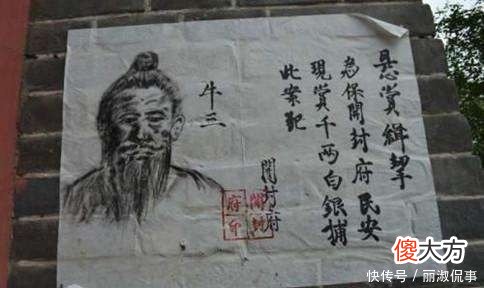 悬賞緝拏
為保開封府民安
現賞千两白銀捕
此案犯
開封府
開封
府印
牛三
傻大方
快传号 / 丽淑侃事